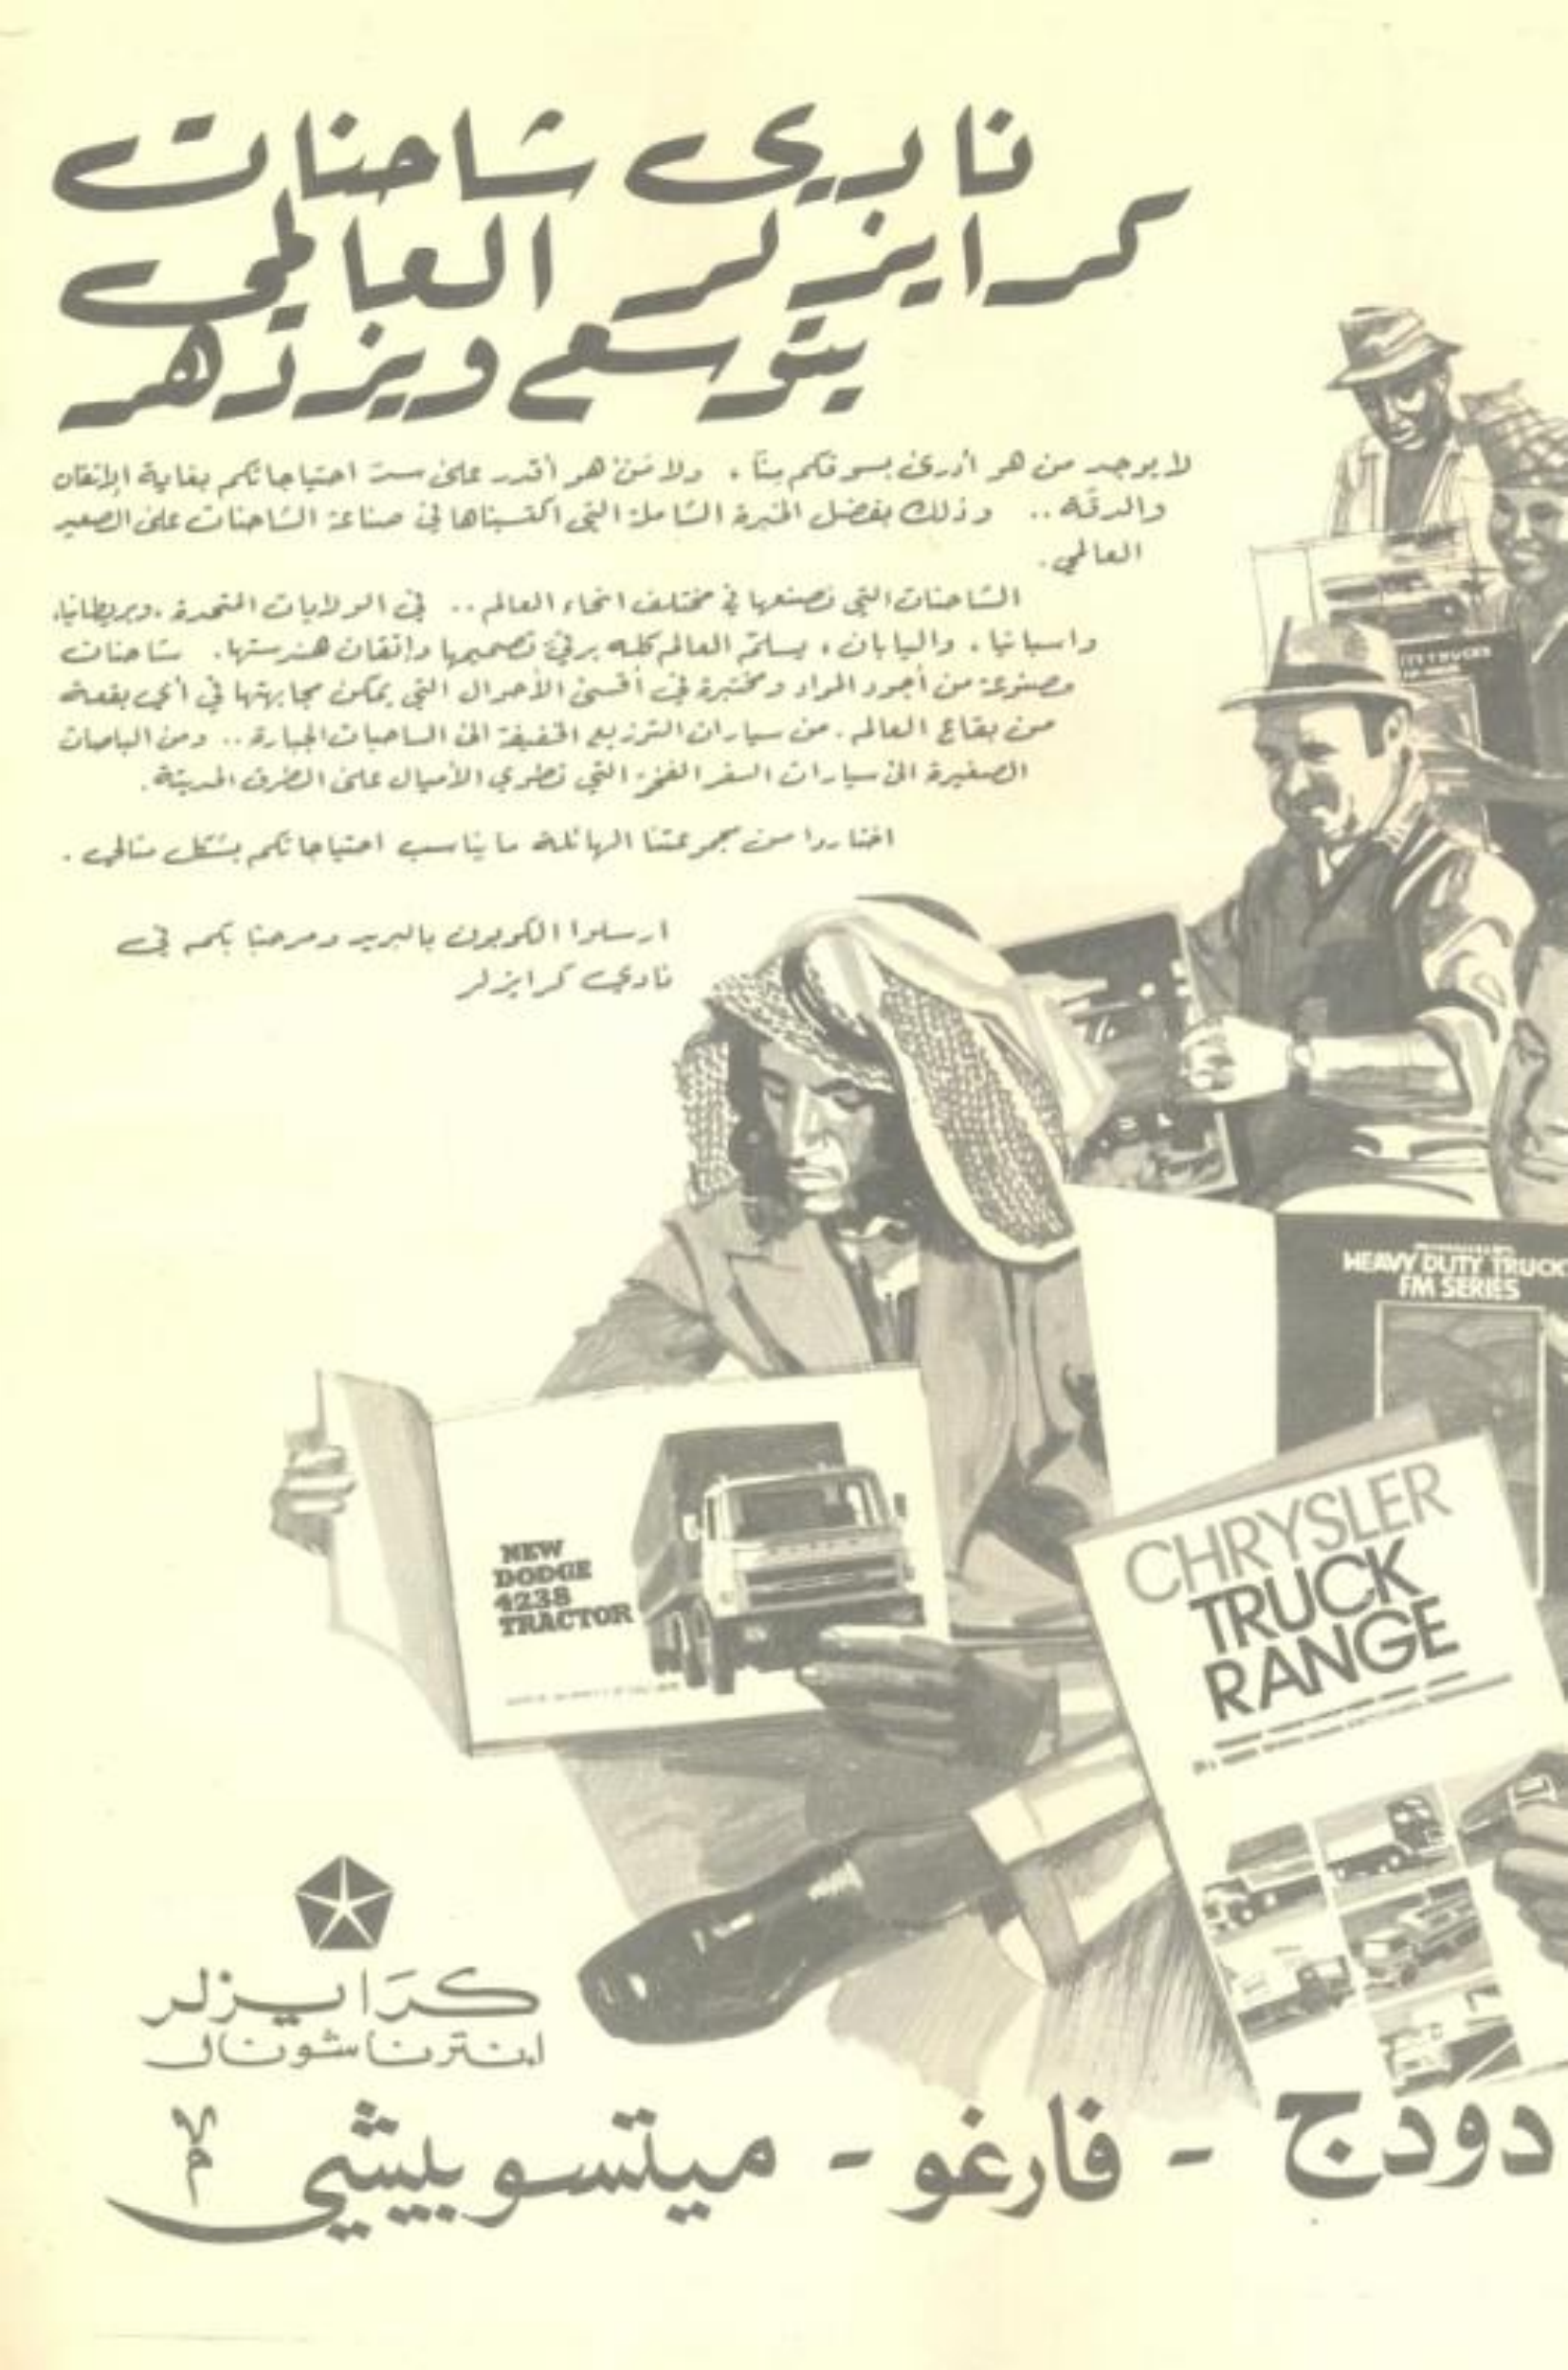 نادي شاحنات
كرايزلر العالمي
يتوسع ويزدهر
لا يوجد من هو أدرى بسوقكم منّا، ولا مَن هو أقدر على سدّ احتياجاتكم بغاية الإتقان
والدقّة.. وذلك بفضل الخبرة الشاملة التي اكتسبناها في صناعة الشاحنات على الصعيد
العالمي.
الشاحنات التي نصنعها في مختلف انحاء العالم.. في الولايات المتحدة، وبريطانيا،
واسبانيا، واليابان، يسلّم العالم كله برقيّ تصميمها واتقان هندستها. شاحنات
مصنوعة من أجود المواد ومختبرة في أقسى الأحوال التي يمكن مجابهتها في أي بقعة
من بقاع العالم. من سيارات التوزيع الخفيفة الى الساحبات الجبارة.. ومن الباصات
الصغيرة الى سيارات السفر الفخمة التي تطوي الأميال على الطرق الحديثة.
اختاروا من مجموعتنا الهائلة ما يناسب احتياجاتكم بشكل مثالي.
ارسلوا الكوبون بالبريد ومرحبًا بكم في
نادي كرايزلر
TRUCKS
Fargo
HEAVY DUTY TRUCK
FM SERIES
NEW
DODGE
4238
TRACTOR
CHRYSLER
TRUCK
RANGE
كرَايزلر
انترناشونال
دودج - فارغو - ميتسوبيشي